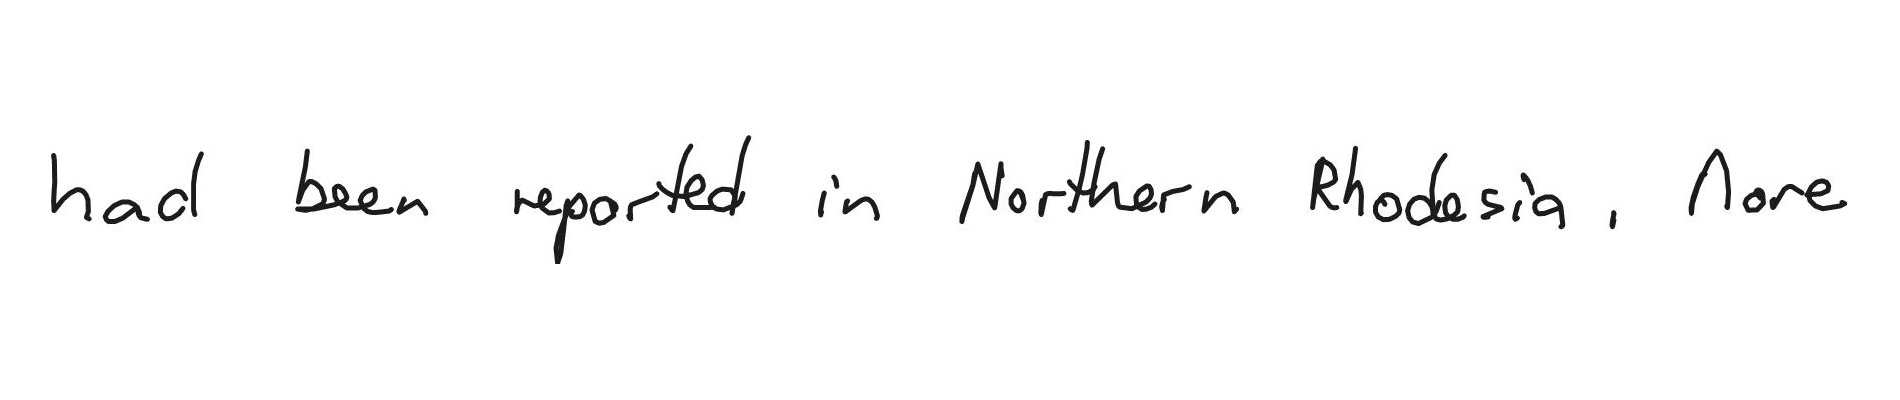 had been reported in Northern Rhodesia.